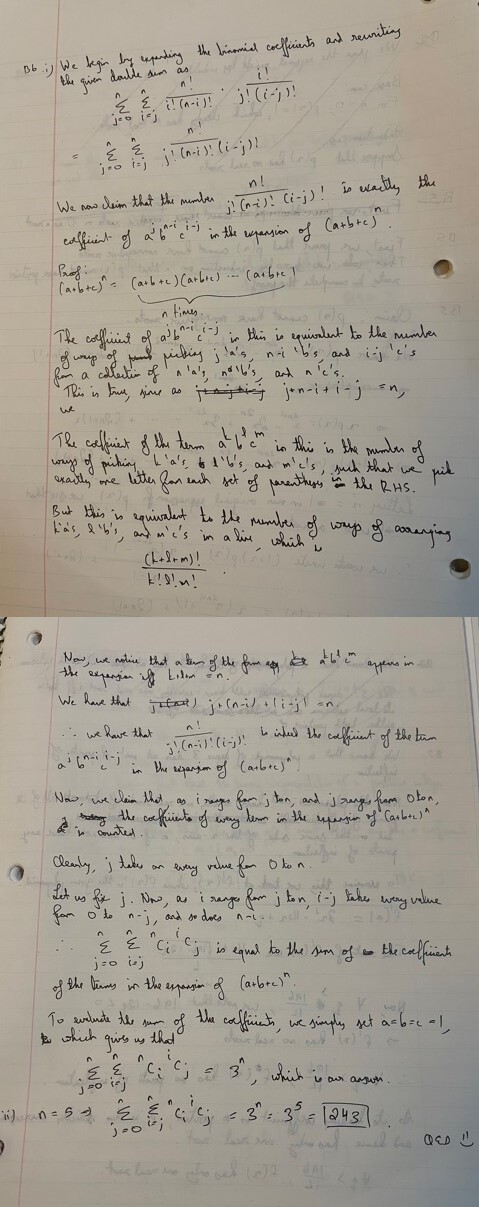 B6 i) We begin by expanding the binomial coefficients and rewriting
the given double sum as
n Σ j=0 n Σ i=j n! / i!(n-i)! · i! / j!(i-j)!
= n Σ j=0 n Σ i=j n! / j!(n-i)!(i-j)!
We now claim that the number n! / j!(n-i)!(i-j)! is exactly the
coefficient of a^j b^{n-i} c^{i-j} in the expansion of (a+b+c)^n.
Proof:
(a+b+c)^n = (a+b+c)(a+b+c) ... (a+b+c)
n times.
The coefficient of a^j b^{n-i} c^{i-j} in this is equivalent to the number
of ways of picking j 'a's, n-i 'b's, and i-j 'c's
from a collection of n 'a's, n 'b's, and n 'c's.
This is true, since as j+n-i+i-j = n,
we
The coefficient of the term a^k b^l c^m in this is the number of
ways of picking k 'a's, l 'b's, and m 'c's, such that we pick
exactly one letter from each set of parentheses in the RHS.
But this is equivalent to the number of ways of arranging
k 'a's, l 'b's, and m 'c's in a line, which is
(k+l+m)! / k!l!m! .
Now, we notice that a term of the form a^k b^l c^m appears in
the expansion iff k+l+m = n.
We have that j+(n-i)+(i-j) = n
∴ we have that n! / j!(n-i)!(i-j)! is indeed the coefficient of the term
a^j b^{n-i} c^{i-j} in the expansion of (a+b+c)^n.
Now, we claim that, as i ranges from j to n, and j ranges from 0 to n,
the coefficients of every term in the expansion of (a+b+c)^n
is counted.
Clearly, j takes on every value from 0 to n.
Let us fix j. Now, as i ranges from j to n, i-j takes every value
from 0 to n-j, and so does n-i.
∴ n Σ j=0 n Σ i=j nCi iCj is equal to the sum of the coefficients
of the terms in the expansion of (a+b+c)^n.
To evaluate the sum of the coefficients, we simply set a=b=c=1,
which gives us that
n Σ j=0 n Σ i=j nCi iCj = 3^n, which is our answer.
ii) n=5 ⇒ n Σ j=0 n Σ i=j nCi iCj = 3^n = 3^5 = 243.
QED